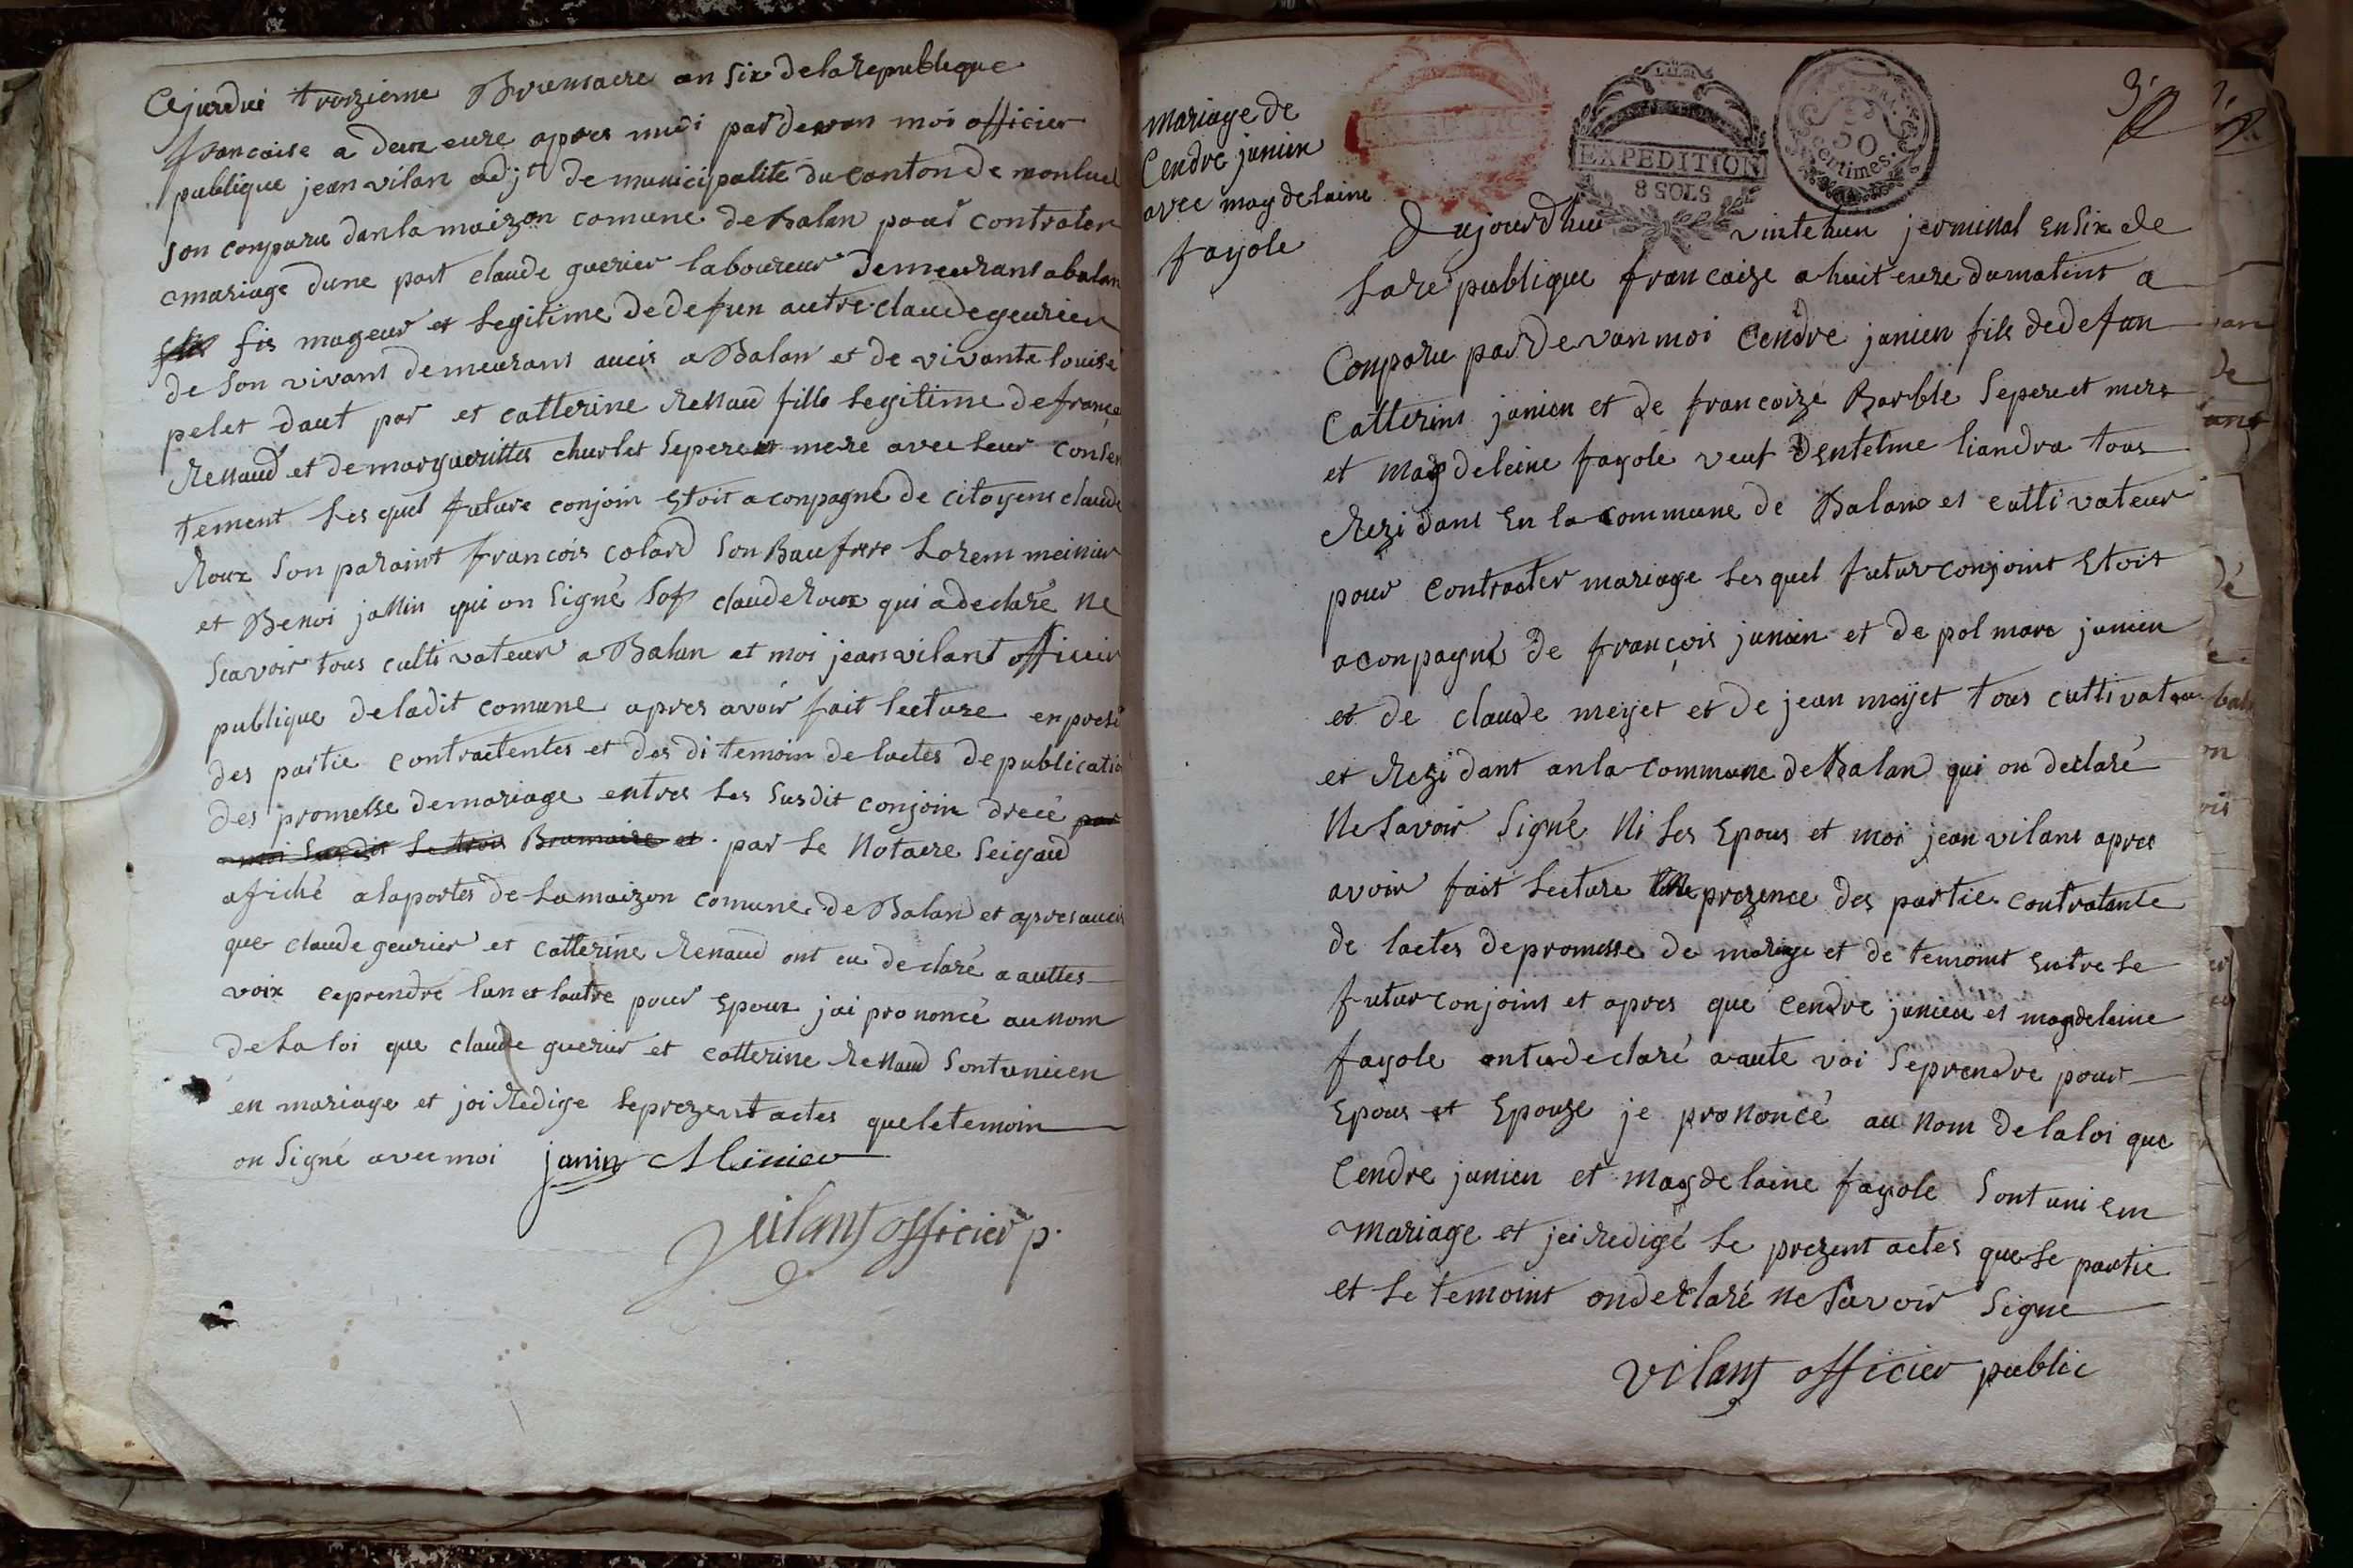 Cejourdui troizieme Brumaere an six de la republique
francaise a deux eure apres midi par devan moi officier
publique jean vilan adjt de municipalite du canton de monluel
son conparu dan la maizon comune de Balan pour contrater
mariage dune part claude guerier laboureur demeurant a balan
fis mageur et legitime de defun autre claude geurier
de son vivant demeurant aucis a Balan et de vivante louise
pelet daut par et catterine Renaud fille legitime de france
Renaud et de margueritte churlet se pere et mere avec leur consen
tement les quel future conjoin etoit aconpagne de citoyens claude
Roux son paraint francois colard son Baufrere Lorem meinier
et Benoi jannin qui on signé sof claude Roux qui a declaré ne
scavoir tous cultivateur a Balan et moi jean vilant officier
publique de ladit comune apres avoir fait lecture en presi
des partie contractentes et des di temoin de lactes de publicatio
des promesse de mariage entres les susdit conjoin drecé par
moi susdit le trois Brumaire et par le Notaere Seigaud
afiché a la portes de la maizon comune de Balan et apres aucis
que claude geurier et catterine Renaud ont eu declaré a auttes
voix ce prendre lun et lautre pour Epoux jai prononcé au nom
de la loi que claude guerier et catterine Renaud sont uni en
en mariage et jai Redige le prezent actes que le temoin
on signé avec moi janin Minier
vilant officier p.
mariage de
Cendre janien
avec magdelaine
fayole
EXPEDITION
8 SOLS
50
centimes.
Dujourdhui vintehun jerminal en six de
la re publique francaize a huit eure du matint a
Conparu par devan moi Cendre janien fils de defan
Catterint janien et de francoize Barble se pere et mere
et magdeleine fayole veuf dentelme liandra tous
Rezidans en la commune de Balan et cultivateur
pour contracter mariage les quel futur conjoint etoit
aconpagné de françois janien et de pol marc janien
et de claude meyet et de jean meyet tous cultivateur
et Rezidant an la commune de Balan qui on declaré
Ne savoir signé Ni les Epous et moi jean vilant apres
avoir fait lecture en prezence des partie contratante
de lactes de promesse de mariage et de temoint entre le
futur conjoins et apres que cendre janien et magdeleine
fayole ont u declaré a aute voi se prendre pour
Epous et Epouze je prononcé au nom de la loi que
Cendre janien et magdelaine fayole sont uni em
mariage et jei Redigé le prezent actes que le partie
et le temoint on declaré ne savoir signe
vilant officier public